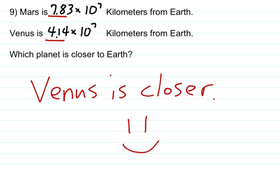 9) Mars is 7.83 × 10⁷ Kilometers from Earth.
Venus is 4.14 × 10⁷ Kilometers from Earth.
Which planet is closer to Earth?
Venus is closer.